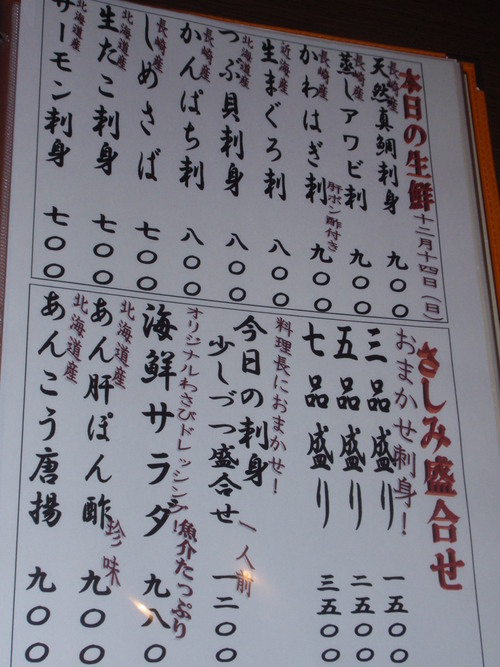 本日の生鮮 十二月十四日（日）
長崎産
天然真鯛刺身 九〇〇
長崎産
蒸しアワビ刺 九〇〇
長崎産
かわはぎ刺 肝ポン酢付き 九〇〇
近海産
生まぐろ刺 八〇〇
北海道産
つぶ貝刺身 八〇〇
長崎産
かんぱち刺 八〇〇
長崎産
しめさば 七〇〇
北海道産
生たこ刺身 七〇〇
北海道産
サーモン刺身 七〇〇
さしみ盛合せ
おまかせ刺身！
三品盛り 一五〇〇
五品盛り 二五〇〇
七品盛り 三五〇〇
料理長におまかせ！
今日の刺身
少しづつ盛合せ 一人前 一二〇〇
オリジナルわさびドレッシング 魚介たっぷり
海鮮サラダ 九八〇
北海道産
あん肝ぽん酢 珍味 九〇〇
北海道産
あんこう唐揚 九〇〇